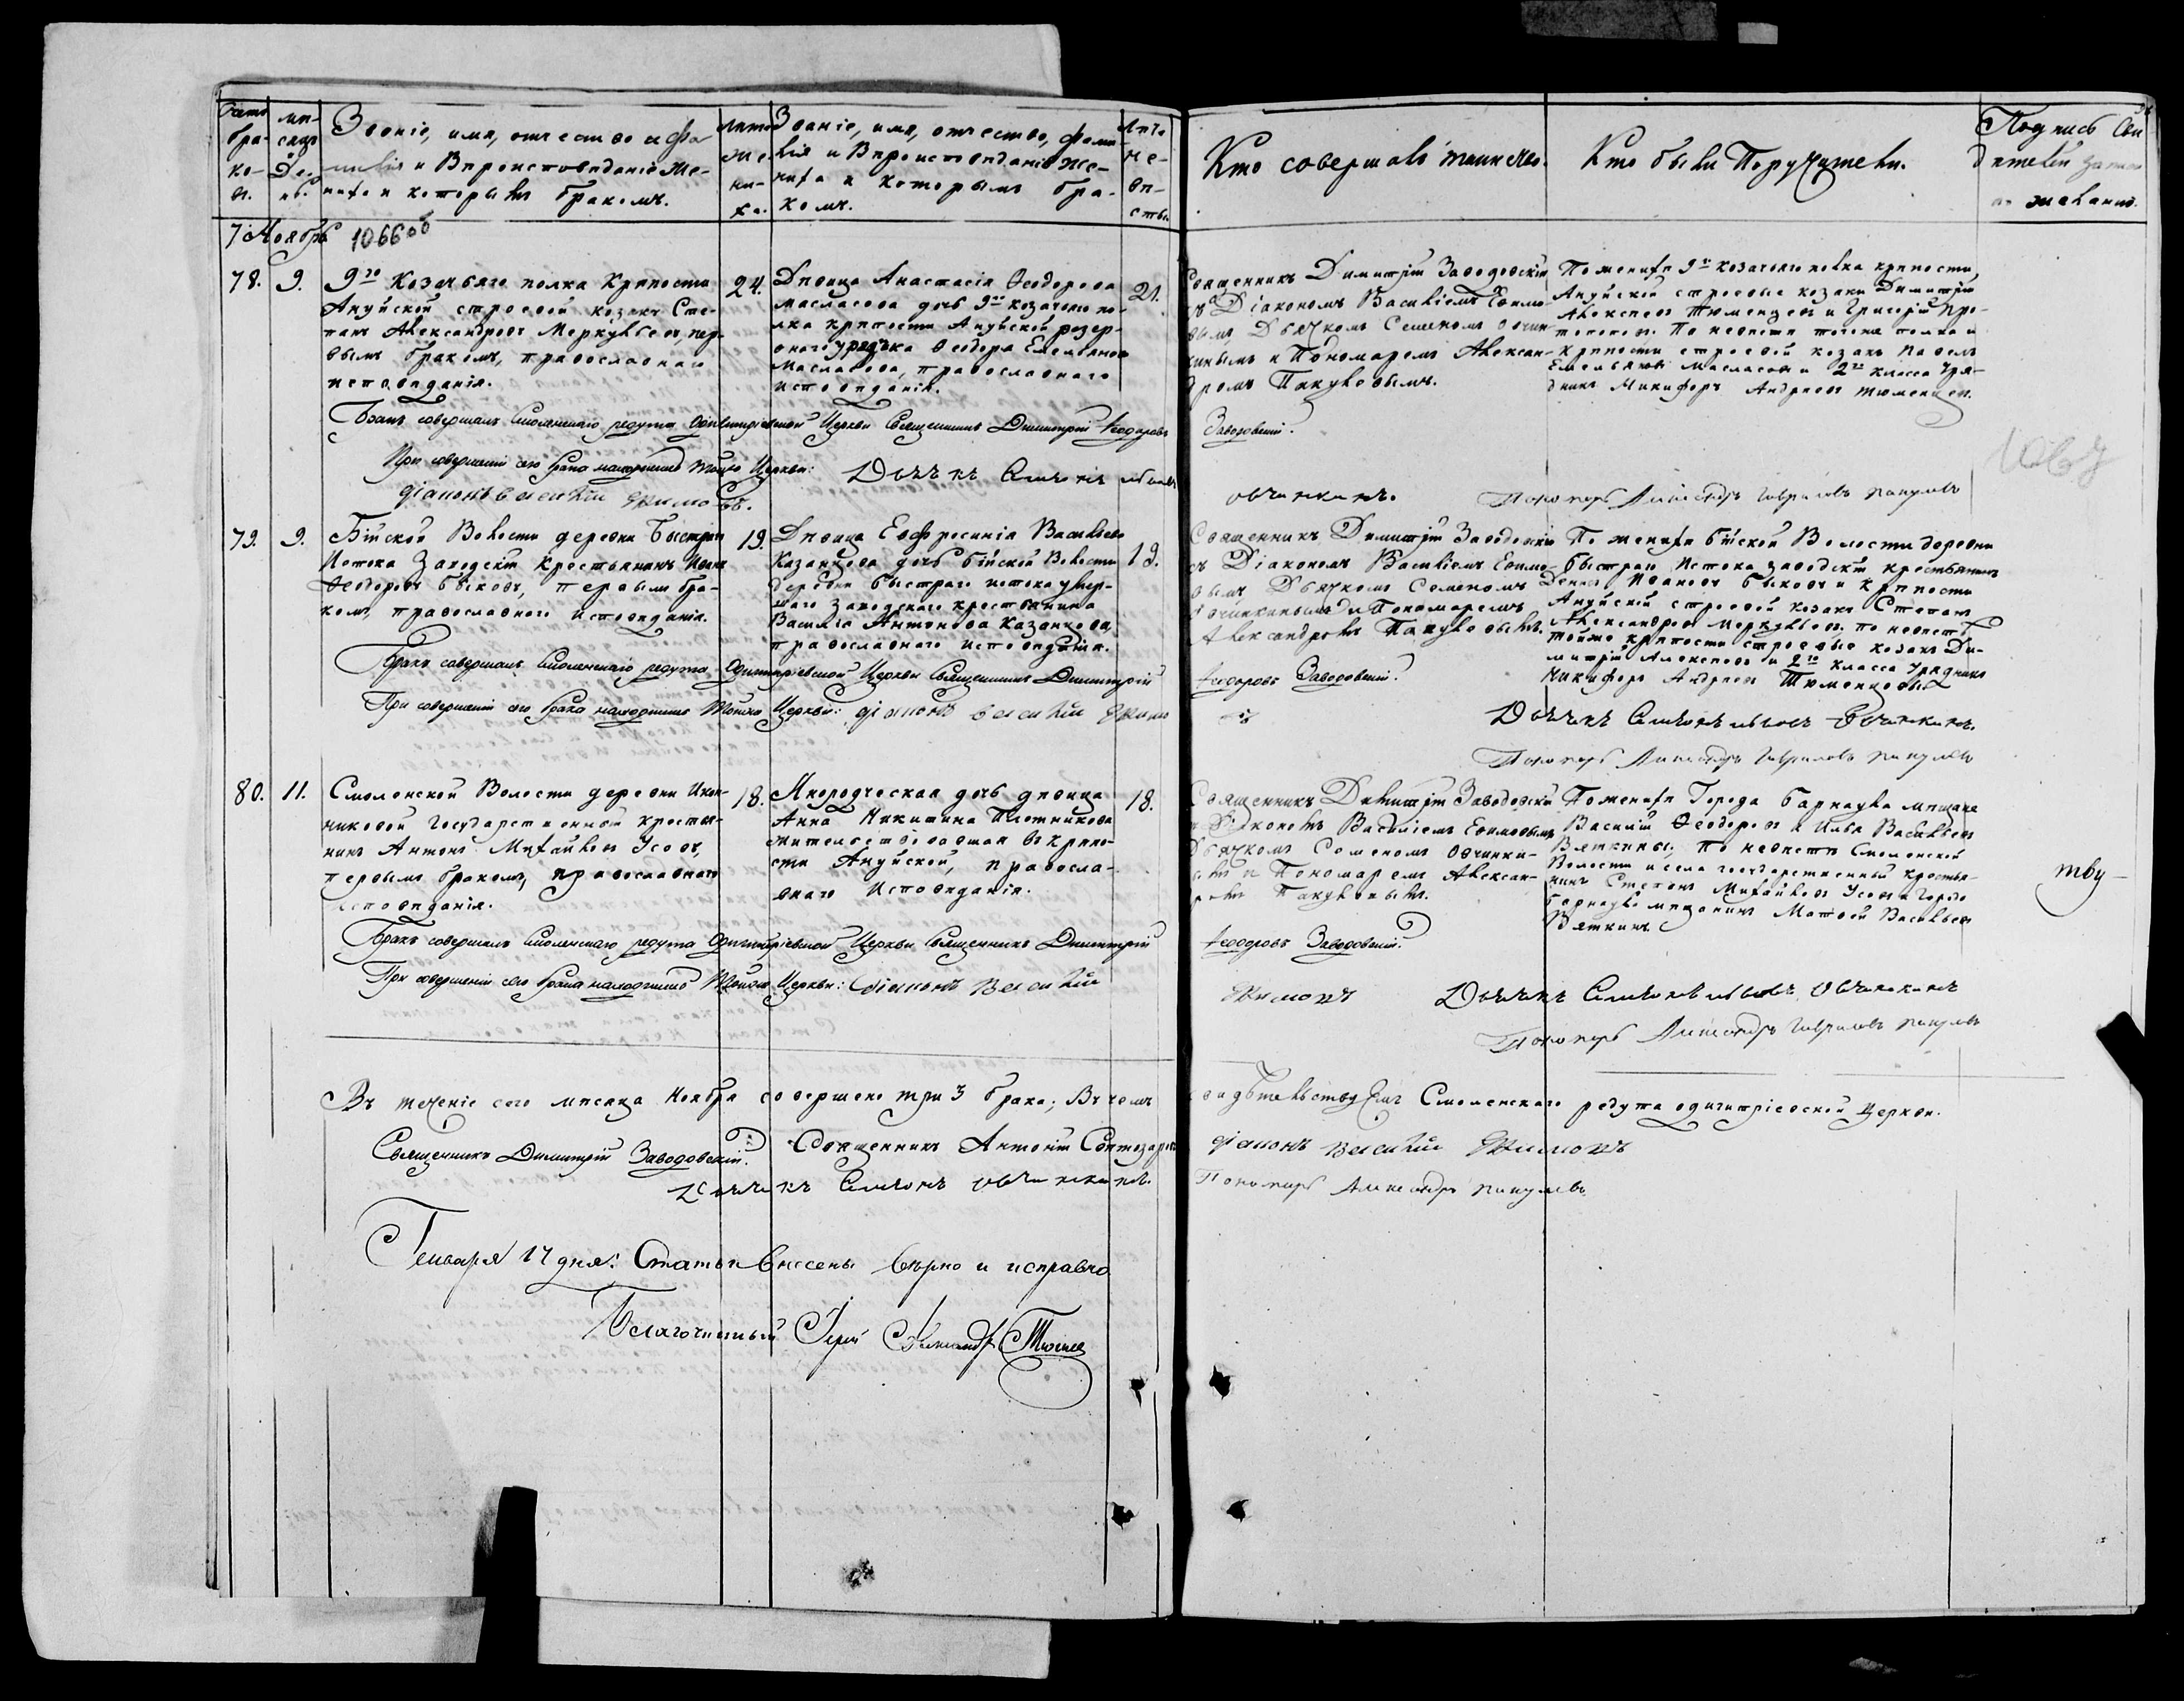 Счетъ бра-ко-въ.
Мѣ-сяцъ Де. нь.
Званіе, имя, отчество и фа-
милія и Вѣроисповѣданіе Же-
ниха и которымъ бракомъ.
Лѣта же-ни-ха.
Званіе, имя, отчество, фами-
лія и Вѣроисповѣданіе Не-
вѣсты и которымъ бра-
комъ.
Лѣта не-вѣ-сты.
Кто совершалъ таинство.
Кто были Поручители.
Подпись Сви-
дѣтелей запи-
си по желанію.
Ноябрь
1066об
78. 9.
9го Козачьяго полка Крѣпости
Ануйской строевой козакъ Сте-
панъ Александровъ Меркульевъ, пер-
вымъ бракомъ, православнаго
исповѣданія.
24.
Дѣвица Анастасія Ѳеодорова
Масласова дочь 9го козачьяго по-
лка крѣпости Ануйской резер-
внаго урядника Ѳеодора Емельянова
Масласова, православнаго
исповѣданія.
21.
Священникъ Димитрій Заводовскій
съ Діакономъ Василіемъ Ефимо-
вымъ Дьячкомъ Семеномъ Овчин-
кинымъ и Пономаремъ Алексан-
дромъ Пакулевымъ.
По женихѣ 9го козачьяго полка крѣпости
Ануйской строевые козаки Димитрій
Алексѣевъ Тюменцевъ и Григорій
По невѣстѣ тогоже полка и
крѣпости строевой козакъ Павелъ
Емельяновъ Масласовъ и 2го класса Уря-
дникъ Никифоръ Андреевъ Тюменцевъ.
Бракъ совершалъ Смоленскаго редута Одигитріевской Церкви Священникъ Димитрій Ѳеодоровъ Заводовскій.
При совершеніи сего брака находились Тойже Церкви: Дьячекъ Симеонъ Овчинкинъ.
діаконъ Василій Ефимовъ.
Пономарь Александръ Гавриловъ Пакулевъ
1067
79. 9.
Бійской Волости деревни Быстраго
Истока Заводскій крестьянинъ Иванъ
Ѳеодоровъ Быковъ, первымъ бра-
комъ, православнаго исповѣданія.
19.
Дѣвица Евфросинія Васильева
Казанцова дочь Бійской Волости
деревни Быстраго истока умер-
шаго заводскаго крестьянина
Василья Антонова Казанцова,
православнаго исповѣданія.
19.
Священникъ Димитрій Заводовскій
съ Діакономъ Василіемъ Ефимо-
вымъ Дьячкомъ Семеномъ
Овчинкинымъ и Пономаремъ
Александромъ Пакулевымъ.
По женихѣ Бійской Волости деревни
Быстраго Истока заводскій крестьянинъ
Денисъ Ивановъ Быковъ и крѣпости
Ануйской строевой козакъ Степанъ
Александровъ Меркульевъ; по невѣстѣ
тойже крѣпости строевые козаки Ди-
митрій Алексѣевъ и 2го класса урядникъ
Никифоръ Андреевъ Тюменцовы.
Бракъ совершалъ Смоленскаго редута Одигитріевской Церкви Священникъ Димитрій Ѳеодоровъ Заводовскій.
При совершеніи сего брака находились Тойже Церкви: діаконъ Василій Ефимовъ
Дьячекъ Симеонъ Овчинкинъ.
Пономарь Александръ Гавриловъ Пакулевъ
80. 11.
Смоленской Волости деревни Икон-
никовой Государственный крестья-
нинъ Антонъ Михайловъ Усовъ,
первымъ бракомъ, православнаго
исповѣданія.
18.
Инородческая дочь дѣвица
Анна Никитина Плотникова
жительствовавшая въ крѣпо-
сти Ануйской, правосла-
внаго исповѣданія.
18.
Священникъ Димитрій Заводовскій
съ Діакономъ Василіемъ Ефимовымъ
Дьячкомъ Семеномъ Овчинки-
нымъ и Пономаремъ Алексан-
дромъ Пакулевымъ.
По женихѣ Города Барнаула мѣщане
Василій Ѳеодоровъ и Илья Васильевъ
Вяткины; по невѣстѣ Смоленской
Волости и села государственный крестья-
нинъ Степанъ Михайловъ Усовъ и Города
Барнаула мѣщанинъ Матвей Васильевъ
Вяткинъ.
Бракъ совершалъ Смоленскаго редута Одигитріевской Церкви Священникъ Димитрій Ѳеодоровъ Заводовскій.
При совершеніи сего брака находились Тойже Церкви: діаконъ Василій Ефимовъ Дьячекъ Симеонъ Овчинкинъ
Пономарь Александръ Гавриловъ Пакулевъ
Въ теченіе сего мѣсяца Ноября совершено три 3 брака; въ чемъ свидѣтельствуемъ Смоленскаго редута одигитріевской церкви.
Священникъ Димитрій Заводовскій. Священникъ Антоній діаконъ Василій Ефимовъ
Дьячекъ Симеонъ Овчинкинъ. Пономарь Александръ Пакулевъ
Генваря 17 дня: Статьи внесены вѣрно и исправно
Благочинный Іерей